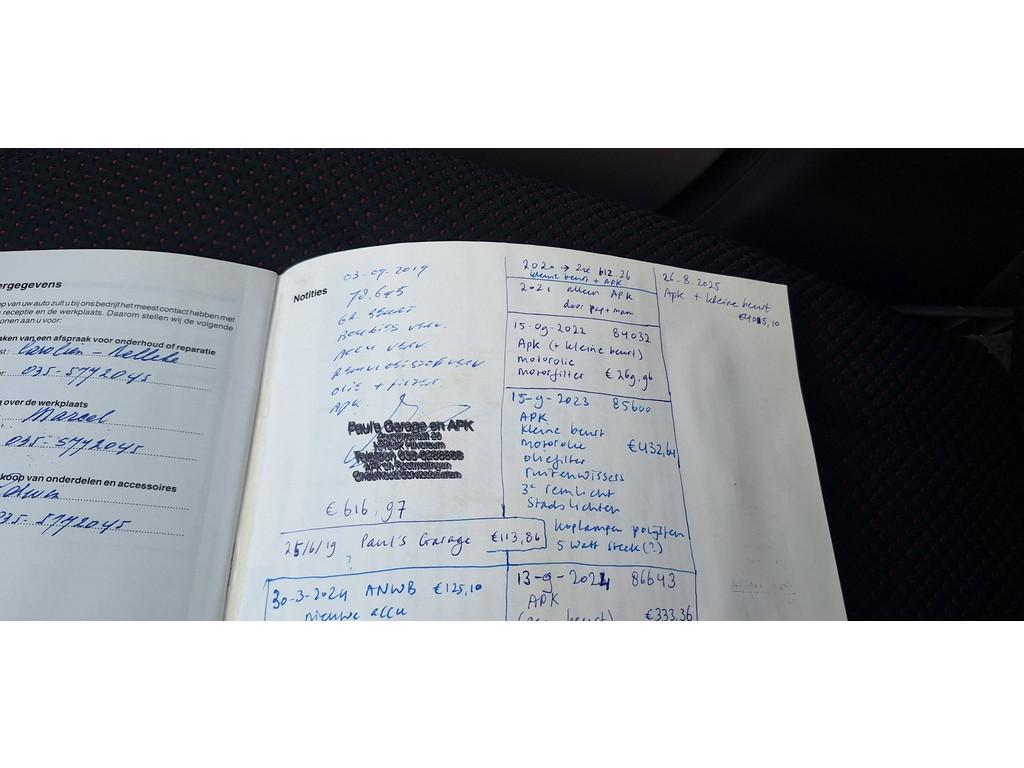 ergegevens
op van uw auto zult u bij ons bedrijf het meest contact hebben met
receptie en de werkplaats. Daarom stellen wij de volgende
onen aan u voor:
aken van een afspraak voor onderhoud of reparatie
st: Karolien - Nelleke
035-5772045
g over de werkplaats
Marcel
035-5772045
koop van onderdelen en accessoires
035-5772045
Notities
03-09-2019
78.645
GR BEURT
BOUGIES VERV.
ACCU VERV.
REMVLOEISTOF VERV
OLIE + FILTER
APK
Paul's Garage en APK
Hilversum
Telefoon
€ 616,97
25/6/19 Paul's Garage €113,86
?
30-3-2024 ANWB €125,10
nieuwe accu
2020 → zie blz. 26
kleine beurt + APK
2021 alleen APK
door pap + mam
15-09-2022 84032
Apk (+ kleine beurt)
motorolie
motorfilter € 269,96
15-9-2023 85600
APK
kleine beurt
motorolie €432,64
oliefilter
ruitenwissers
3e remlicht
Stadslichten
koplampen polijsten
5 Watt steek (?)
13-9-2024 86643
APK
€333,36
26-8-2025
Apk + kleine beurt